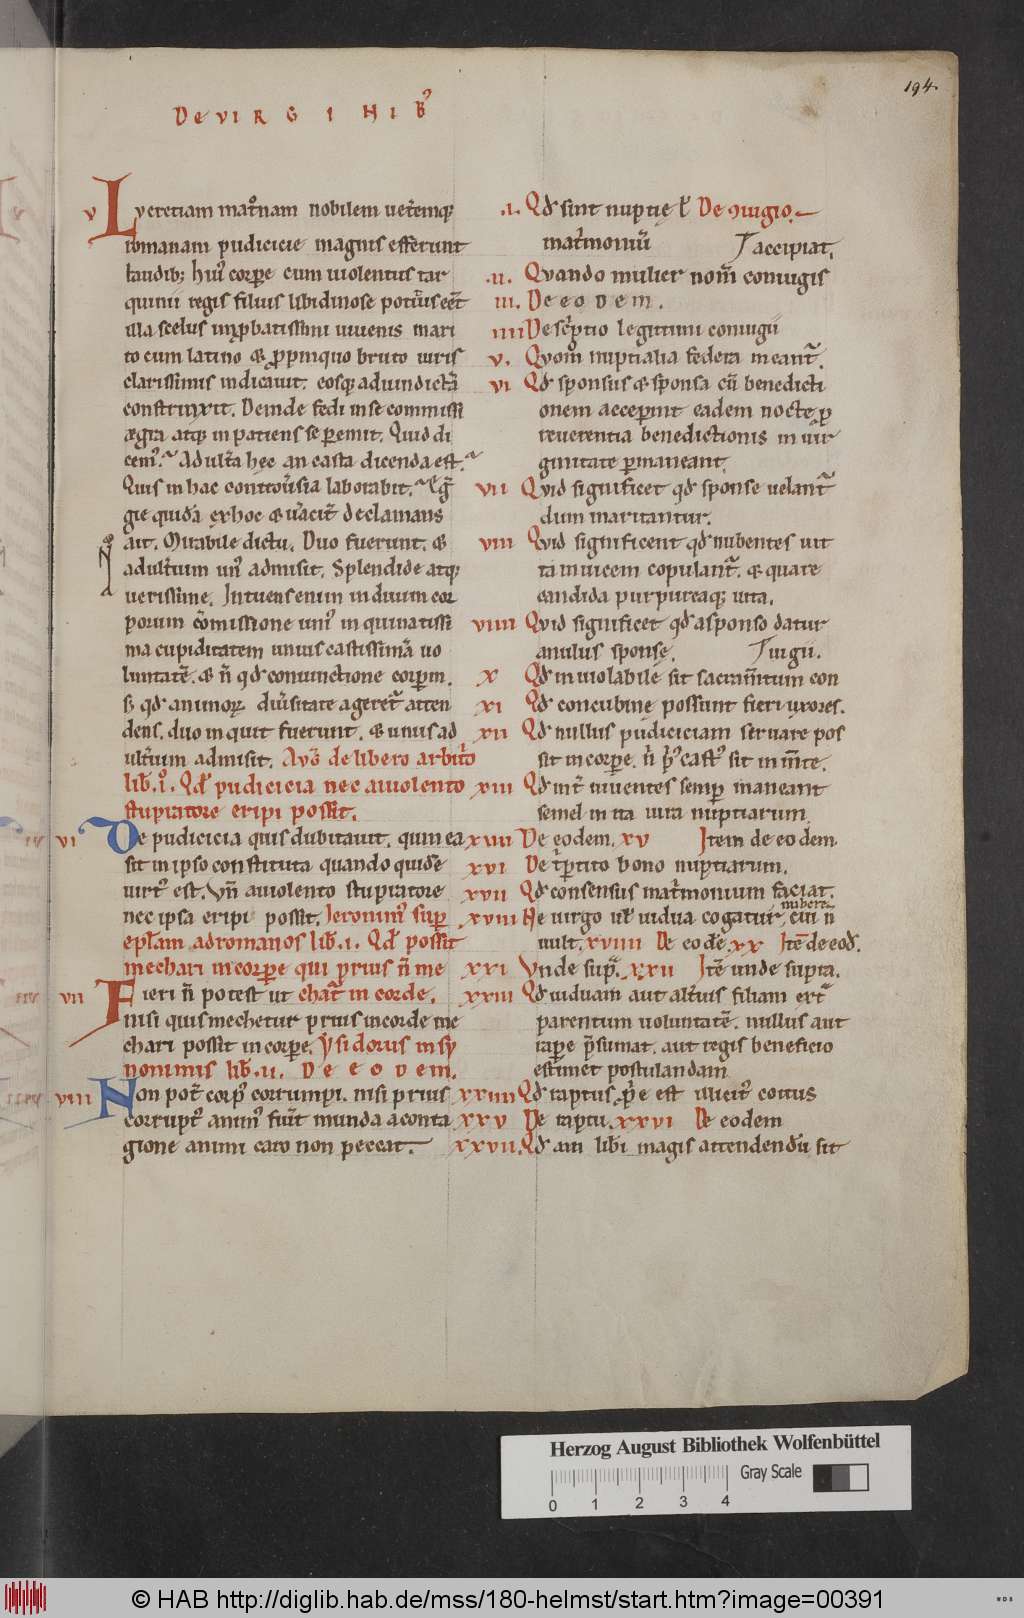 194.
De VIRGINIB9
v Lucretiam mat͛onam nobilem uet͛emq;
romanam pudicicie magnis efferunt
laudib; hui9 corpore cum uiolentus tar
quinii regis filius libidinose potit9 eēt
illa scelus improbatissimi iuuenis mari
to cum latino & ꝓpinquo bruto uiris
clarissimis indicauit. eosq; ad uindictā
constrinxit. Deinde fedi in se commissi
ægra atq; inpatiens se ꝑemit. Quid di
cem9. adult͛a hec an casta dicenda est.
Quis in hac contou͛sia laborabit.
gie quidā ex hoc & u͛acit͛ declamans
ait. Mirabile dictu. Duo fuerunt. &
adult͛ium un9 admisit. Splendide atq;
uerissime. Intuens enim in duum cor
porum cōmissione uni9 inquinatissi
ma cupiditatem unius castissimā uo
luntatē. & n̄ qđ coniunctione corpꝝm.
s; qđ animoꝝ diu͛sitate ageret͛ atten
dens. duo inquit fuerunt. & unus ad
ult͛ium admisit. Auḡ de libero arbit͛o
lib̄. i9. Qđ pudicicia nec a uiolento
stupratore eripi possit.
vi De pudicicia quis dubitauit. quin ea
sit in ipso constituta quando quidē
uirt9 est. Vn̄ a uiolento stupratore
nec ipsa eripi possit. Ieronim9 sup͛
eplam ad romanos lib̄. i. Qđ possit
mechari in corpore qui prius n̄ me
vii Fieri n̄ potest ut chat͛ in corde.
nisi quis mechetur prius in corde me
chari possit in corpore. Ysidorus in sy
nonimis lib̄. ii. De eodem.
viii Non pot͛ corp9 corrumpi. nisi prius
corrupt9 anim9 fu͛it munda a conta
gione animi caro non peccat.
.i. Qđ sint nuptię ł De 9iugio.
mat͛moniū accipiat.
.ii. Quando mulier nom̄ coniugis
iii. De eodem.
iiii De sc͛ptio legitimi coniugii
v. Quom̄ nuptialia federa ineant͛.
vi Qđ sponsus & sponsa cū benedicti
onem acceperint eadem nocte ꝓ
reuerentia benedictionis in uir
ginitate ꝑmaneant.
vii Quid significet qđ sponse uelant͛
dum maritantur.
viii Quid significent qđ nubentes uit
ta inuicem copulant͛. & quare
candida purpureaq; uitta.
viiii Quid significet qđ a sponso datur
anulus sponsę. iugii.
x Qđ inuiolabile sit sacram̄tum con
xi Qđ concubine possunt fieri uxores.
xii Qđ nullus pudiciciam seruare pos
sit in corpore. n̄ p͛9 cast9 sit in m̄te.
xiii Qđ int͛ uiuentes semper maneant
semel inita iura nuptiarum.
xiiii De eodem. xv Item de eodem
xvi De t͛ptito bono nuptiarum.
xvii Qđ consensus mat͛monium faciat.
nubere
xviii Ne uirgo ul̄ uidua cogatur, cui n̄
uult. xviiii De eodē xx Itē de eođ.
xxi Vnde supᷓ. xxii Itē unde supra.
xxiii Qđ uiduam aut alt͛ius filiam ext͛
parentum uoluntatē. nullus aut
rapere p̄sumat. aut regis beneficio
estimet postulandam
xxiiii Qđ raptus ꝓpe est illicit9 coitus
xxv De raptu. xxvi De eodem
xxvii. Qđ aui libi magis attendendū sit
Herzog August Bibliothek Wolfenbüttel
Gray Scale
0 1 2 3 4
© HAB http://diglib.hab.de/mss/180-helmst/start.htm?image=00391